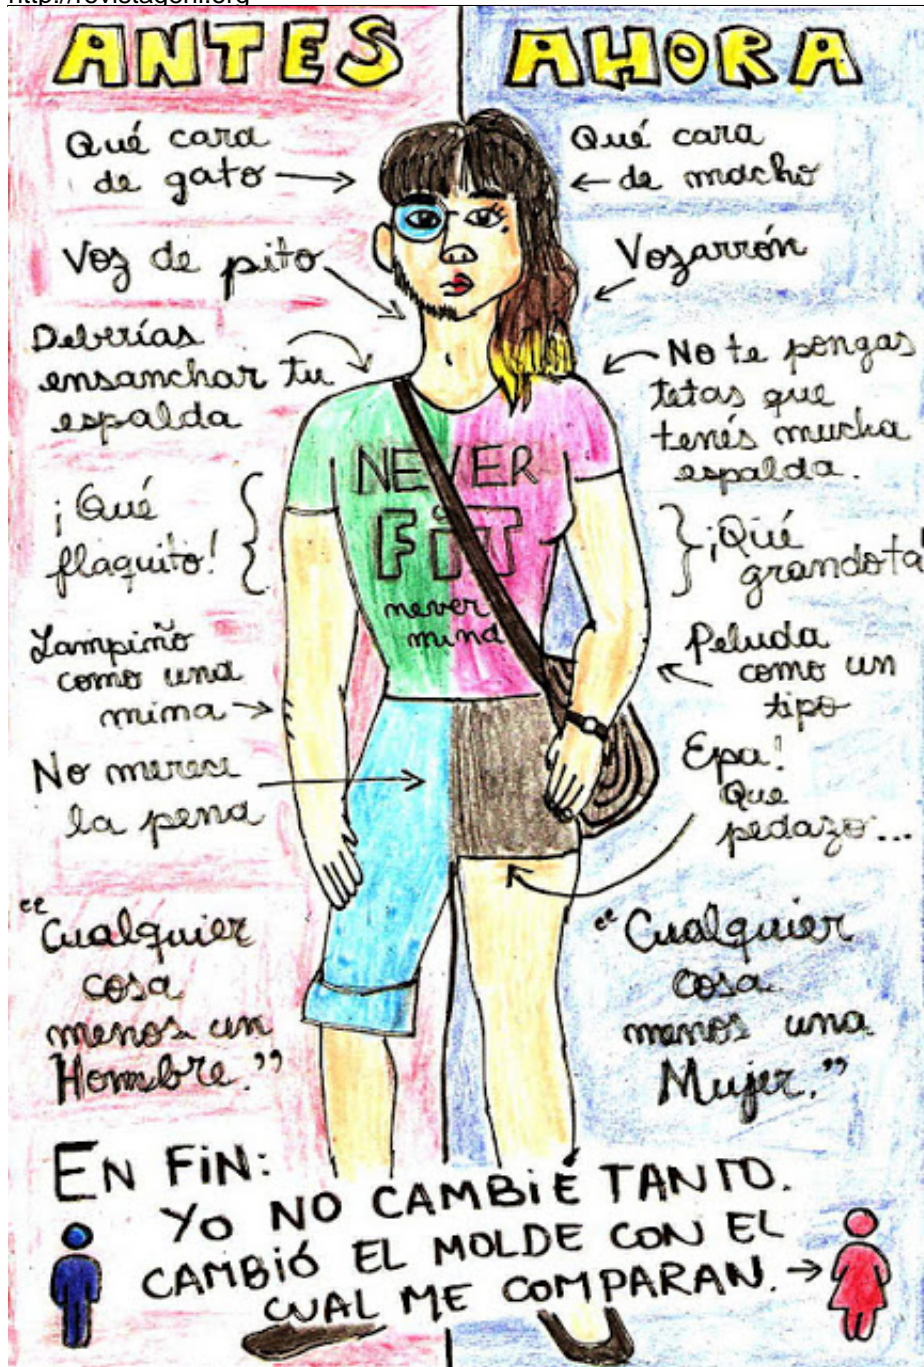 http://revistaqom.org
ANTES
Qué cara
de gato
Voz de pito
Deberías
ensanchar tu
espalda
¡Qué
flaquito!
Lampiño
como una
mina
No merece
la pena
"Cualquier
cosa
menos un
Hombre."
AHORA
Qué cara
de macho
Vozarrón
No te pongas
tetas que
tenés mucha
espalda.
¡Qué
grandota!
Peluda
como un
tipo
Epa!
Que
pedazo...
"Cualquier
cosa
menos una
Mujer."
NEVER
FiT
never
mind
EN FiN:
YO NO CAMBiÉ TANTO.
CAMBiÓ EL MOLDE CON EL
CUAL ME COMPARAN.